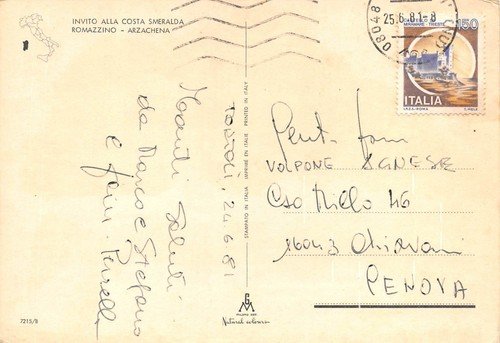 INVITO ALLA COSTA SMERALDA
ROMAZZINO - ARZACHENA
08048
25.6.81-8
MIRAMARE-TRIESTE
150
ITALIA
I.P.Z.S.-ROMA
24.6.81
Saluti
da Marco e Stefano
e fam.
STAMPATO IN ITALIA IMPRIMÉ EN ITALIE PRINTED IN ITALY
Gent. fam
VOLPONE AGNESE
Cso Millo 46
16043 Chiavari
GENOVA
7215/B
GM
MILANO
Natural colour